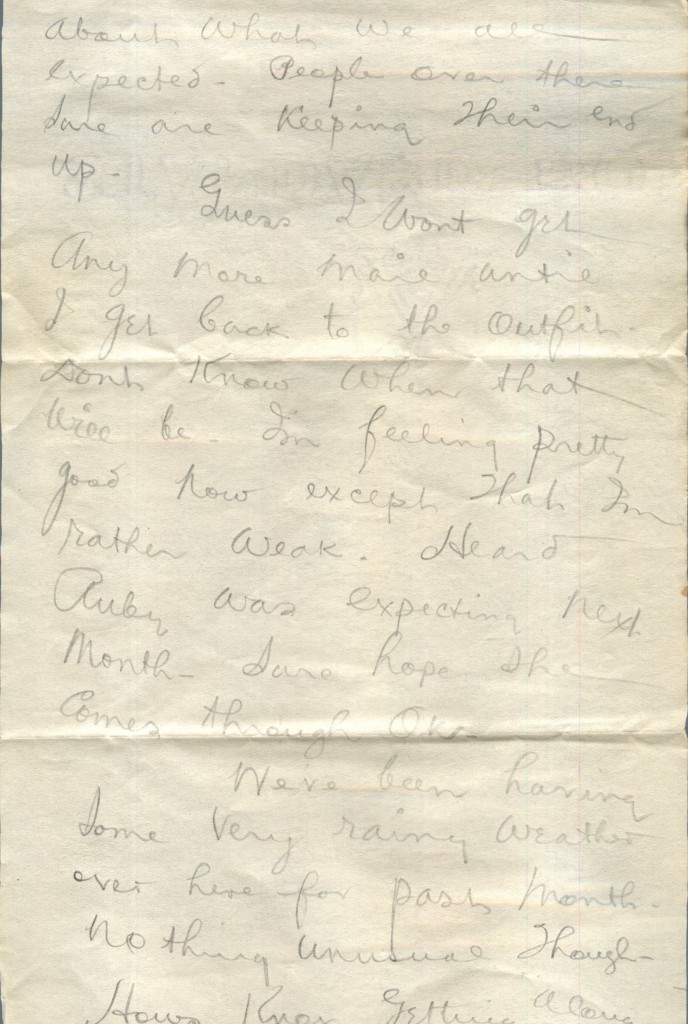 about what we all
expected - People over there
sure are keeping their end
up -
Guess I wont get
Any more mail until
I get back to the outfit -
Dont know when that
will be - I'm feeling pretty
good now except that I'm
rather weak. Heard
Ruby was expecting next
Month - Sure hope she
Comes through Ok -
We've been having
Some very rainy weather
over here for past month -
Nothing unusual though -
Hows Knox getting along